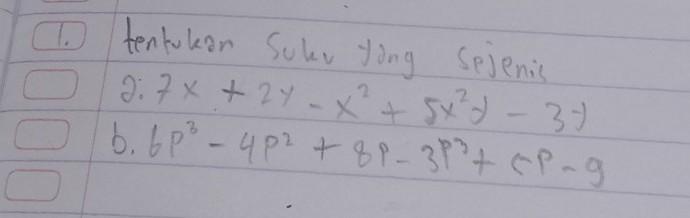 1. tentukan suku yang sejenis
a. 7x + 2y - x² + 5x²y - 3y
b. 6p³ - 4p² + 8p - 3p³ + 5p - 9